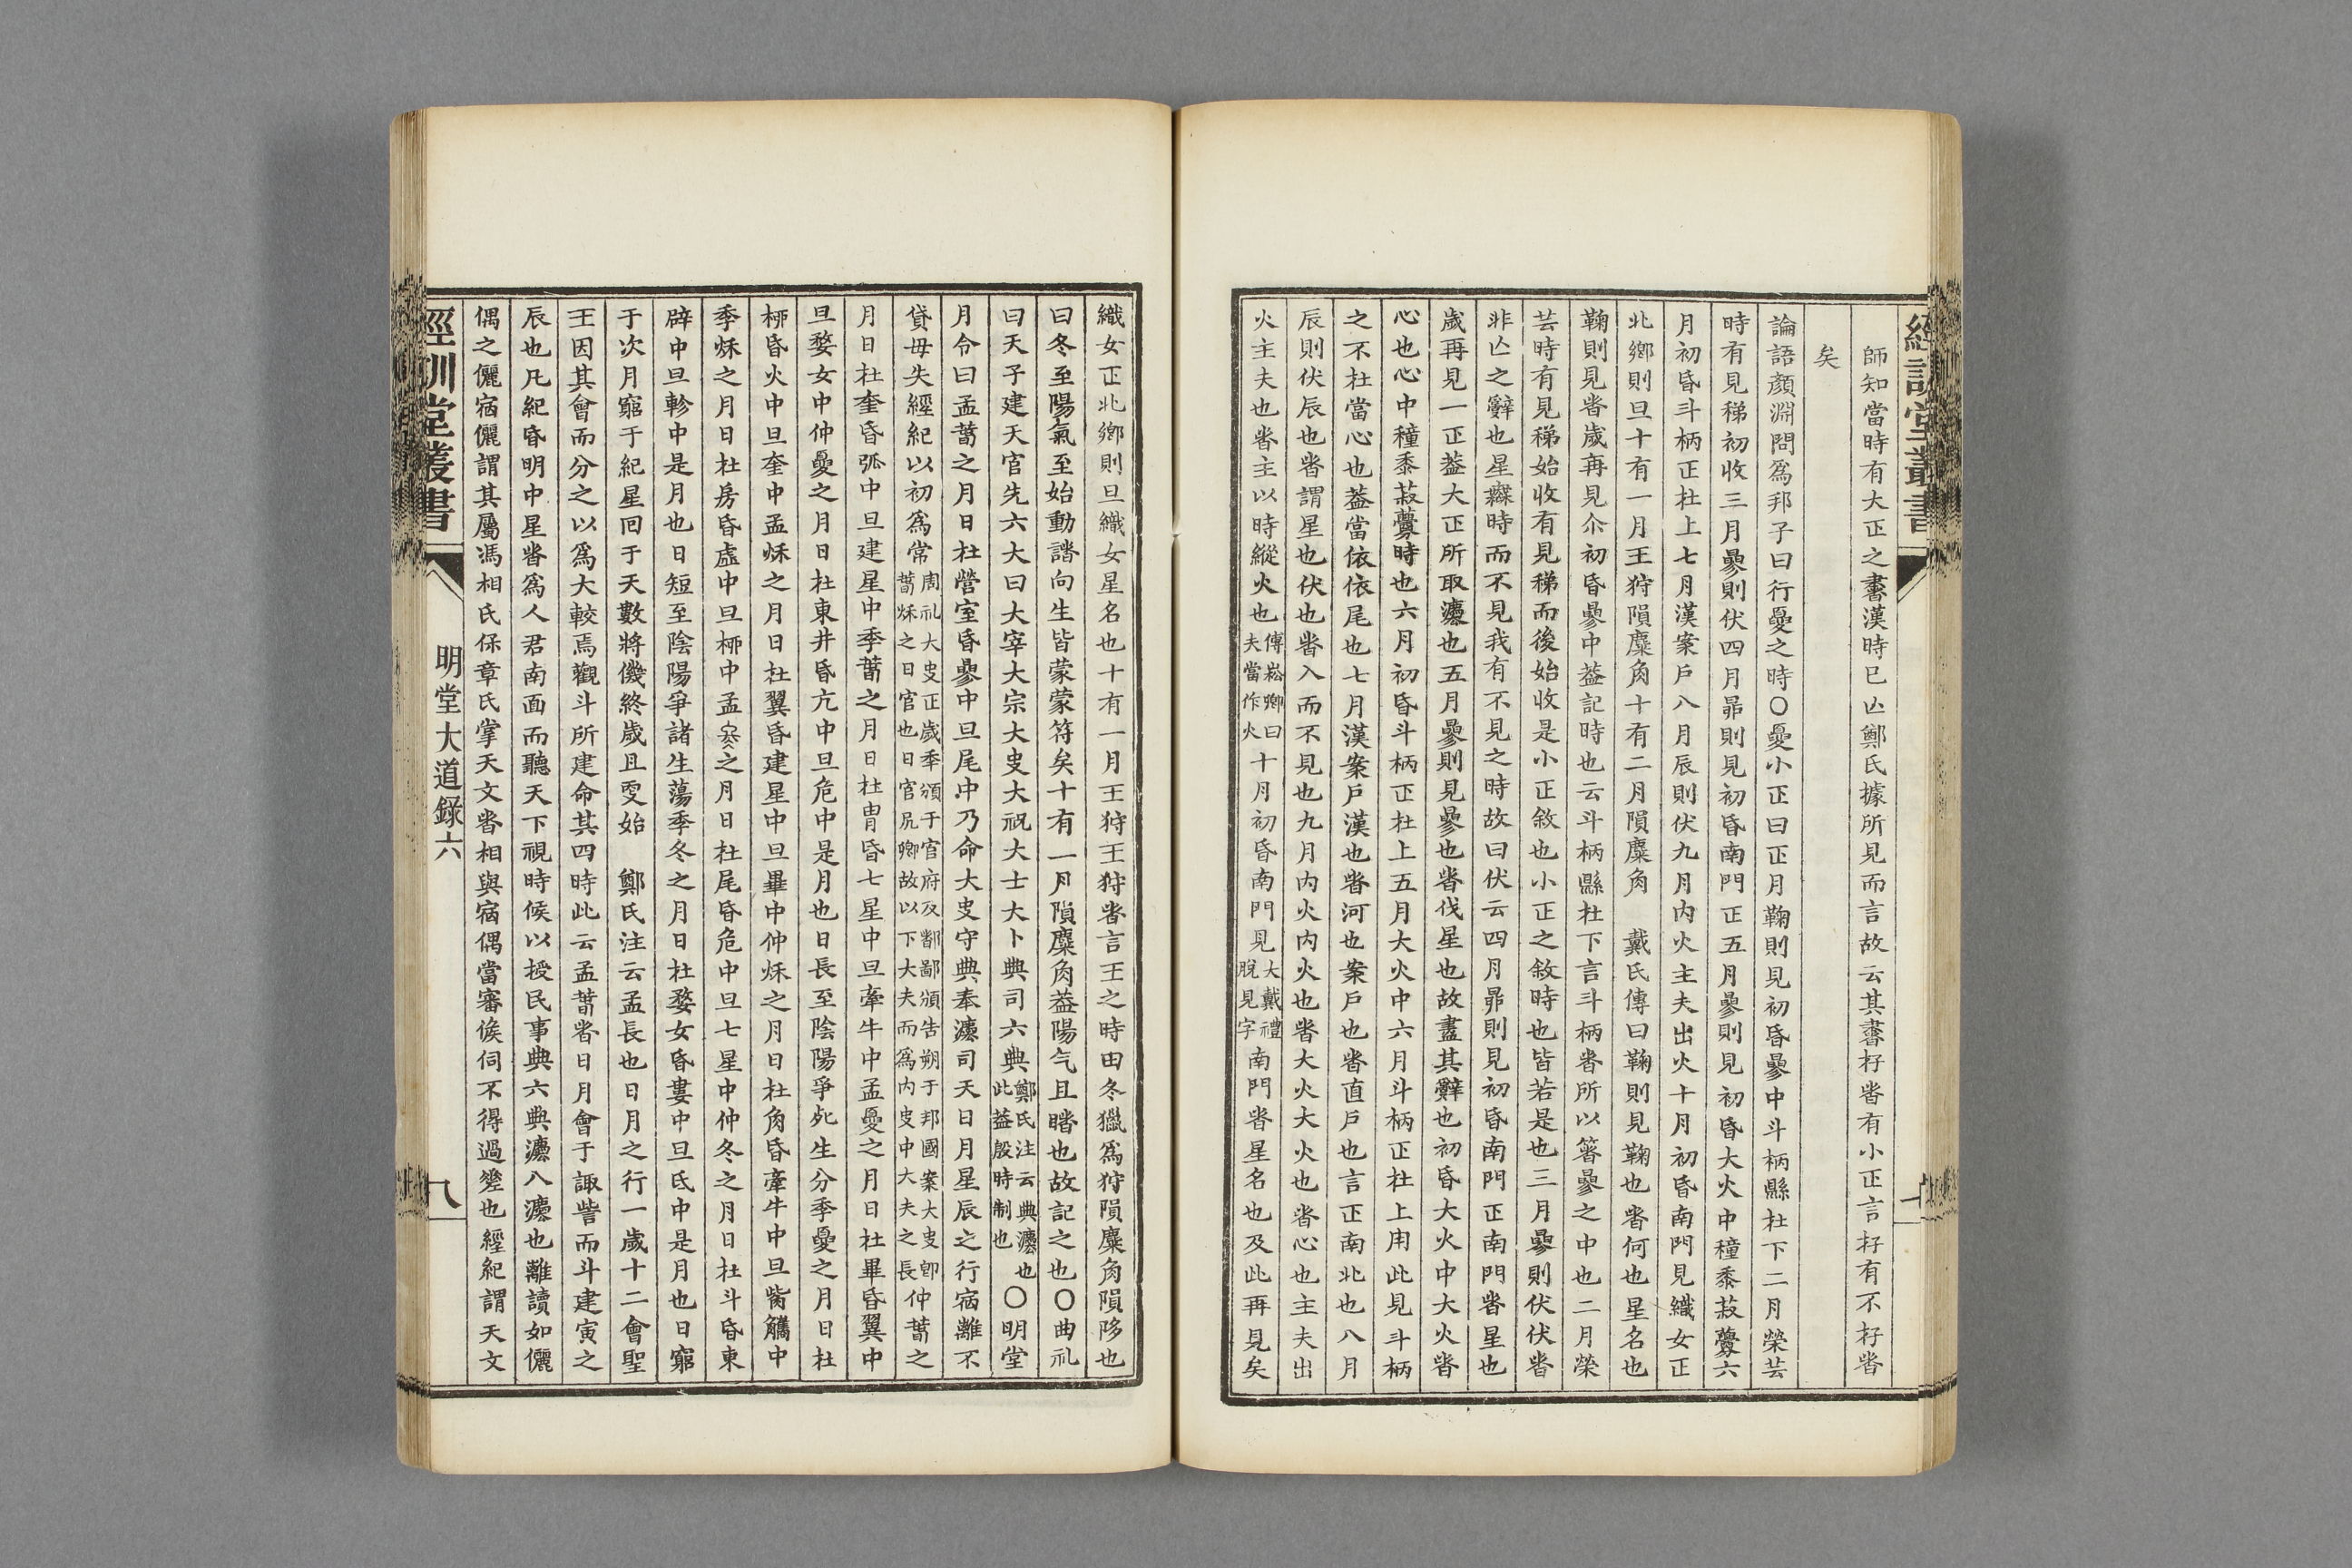 經訓堂叢書
師知當時有大正之書漢時已亾鄭氏據所見而言故云其書㝊者有小正言㝊有不㝊者
矣
論語顏淵問爲邦子曰行夏之時〇夏小正曰正月鞠則見初昏參中斗柄縣在下二月榮芸
時有見稊初收三月參則伏四月昴則見初昏南門正五月參則見初昏大火中穜黍菽糜六
月初昏斗柄正在上七月漢案戶八月辰則伏九月內火主夫出火十月初昏南門見織女正
北鄉則旦十有一月王狩隕麋角十有二月隕麋角　戴氏傳曰鞠則見鞠也者何也星名也
鞠則見者歲再見尒初昏參中葢記時也云斗柄縣在下言斗柄者所以箸參之中也二月榮
芸時有見稊始收有見稊而後始收是小正敘也小正之敘時也皆若是也三月參則伏伏者
非亾之辭也星無時而不見我有不見之時故曰伏云四月昴則見初昏南門正南門者星也
歲再見一正葢大正所取灋也五月參則見參也者伐星也故盡其辭也初昏大火中大火者
心也心中穜黍菽糜時也六月初昏斗柄正在上五月大火中六月斗柄正在上用此見斗柄
之不在當心也葢當依依尾也七月漢案戶漢也者河也案戶也者直戶也言正南北也八月
辰則伏辰也者謂星也伏也者入而不見也九月內火內火也者大火大火也者心也主夫出
火主夫也者主以時縱火也傅崧卿曰夫當作火十月初昏南門見大戴禮脫見字南門者星名也及此再見矣
織女正北鄉則旦織女星名也十有一月王狩王狩者言王之時田冬獵爲狩隕麋角隕陊也
曰冬至陽氣至始動諸向生皆蒙蒙符矣十有一月隕麋角葢陽气且睹也故記之也〇曲礼
曰天子建天官先六大曰大宰大宗大史大祝大士大卜典司六典鄭氏注云典灋也此葢殷時制也〇明堂
月令曰孟萅之月日在營室昏參中旦尾中乃命大史守典奉灋司天日月星辰之行宿離不
貸毋失經紀以初爲常周礼大史正歲年頒于官府及都鄙頒告朔于邦國案大史卽仲萅之萅秌之日官也日官凥卿故以下大夫而爲內史中大夫之長仲萅之
月日在奎昏弧中旦建星中季萅之月日在胃昏七星中旦牽牛中孟夏之月日在畢昏翼中
旦婺女中仲夏之月日在東井昏亢中旦危中是月也日長至陰陽爭死生分季夏之月日在
桺昏火中旦奎中孟秌之月日在翼昏建星中旦畢中仲秌之月日在角昏牽牛中旦觜觿中
季秌之月日在房昏虛中旦桺中孟冬之月日在尾昏危中旦七星中仲冬之月日在斗昏東
辟中旦軫中是月也日短至陰陽爭諸生蕩季冬之月日在婺女昏婁中旦氐中是月也日窮
于次月窮于紀星回于天數將幾終歲且更始　鄭氏注云孟長也日月之行一歲十二會聖
王因其會而分之以爲大較焉觀斗所建命其四時此云孟萅者日月會于諏訾而斗建寅之
辰也凡紀昏明中星者爲人君南面而聽天下視時候以授民事典六典灋八灋也離讀如儷
偶之儷宿儷謂其屬馮相氏保章氏掌天文者相與宿偶當審候伺不得過差也經紀謂天文
經訓堂叢書
明堂大道錄六
八